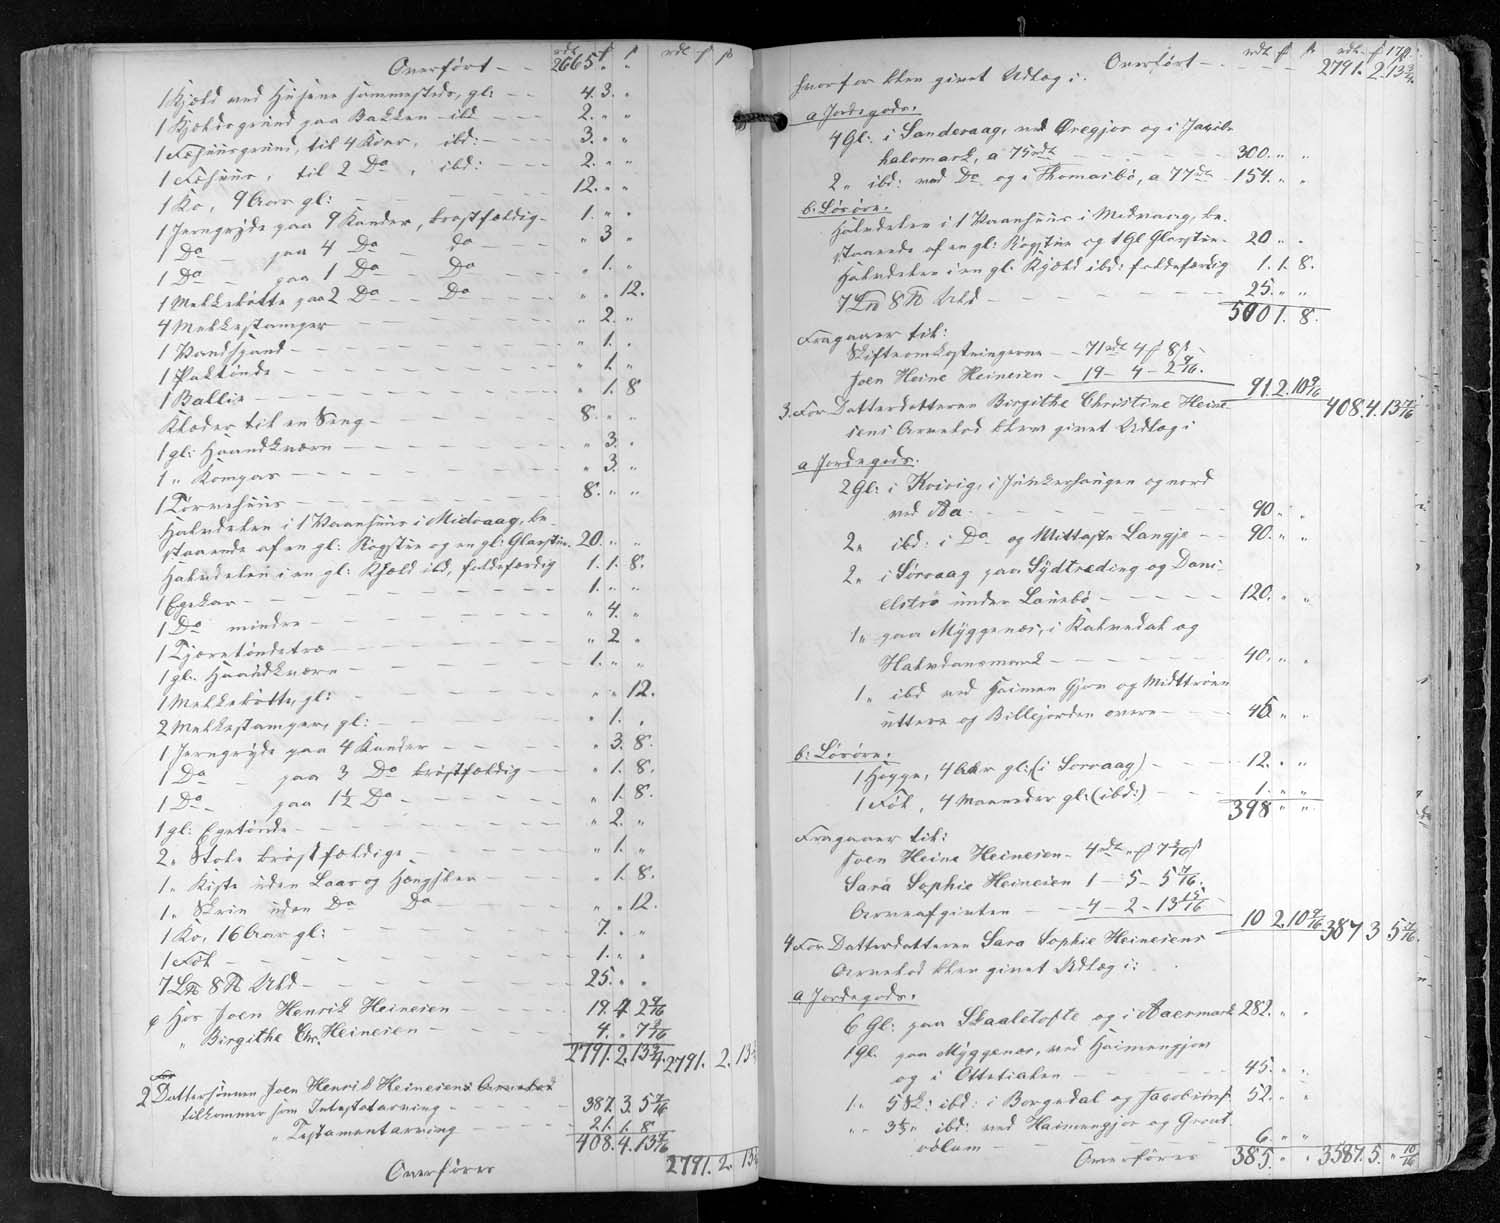 rdl. ƒ ß rdl. ƒ ß
Overført - - 2665 " "
1 Kjæld ved Husene sammesteds, gl: - - 4. 3. "
1 Kjældsgrund paa Bakken ibd - - - 2. " "
1 Fæhuusgrund, til 4 Köer, ibd: - - - 3. " "
1 Fæhuus, til 2 Do, ibd: - - - 2. " "
1 Ko, 9 Aar gl: - - - 12. " "
1 Jerngryde paa 9 Kander, brøstfældig - 1. " "
1 Do - paa 4 Do Do - - - " 3 "
1 Do - paa 1 Do - Do - - - " 1. "
1 Melkebøtte paa 2 Do - Do - - - " " 12.
4 Melkestamper - - - " 2. "
1 Vandspand - - - " 1. "
1 Paltönde - - - " 1. "
1 Ballie - - - " 1. 8
Klæder til en Seng - - - 8. " "
1 gl: Haandkværn - - - " 3. "
1 " Kompas - - - " 3. "
1 Törvehuus - - - 8. " "
Halvdelen i 1 Vaanhuus i Midvaag, be-
staaende af en gl: Rogstue og en gl: Glasstue. 20. " "
Halvdelen i en gl: Kjæld ibd, faldefærdig 1. 1. 8.
1 Egekar - - - 1. " "
1 Do mindre - - - " 4. "
1 Tjæretöndetræ - - - " 2 "
1 gl: Haandkværn - - - 1. " "
1 Melkebøtte, gl: - - - " " 12.
2 Melkestamper, gl: - - - " 1. "
1 Jerngryde paa 4 Kander - - - " 3. 8.
1 Do - paa 3 Do brøstfældig - - " 1. 8.
1 Do - paa 1½ Do - - - " 1. 8.
1 gl: Egetönde - - - " 2. "
2 " Stole brøstfældige - - - " 1. "
1 " Kiste uden Laas og Hængsler - - " 1. 8.
1 " Skrin uden Do Do - - - " " 12.
1 Ko, 16 Aar gl: - - - 7. " "
1 Föl - - - 1. " "
7 L℔ 8 ℔ Uld - - - 25. " "
Hos Joen Henrik Heinesen - - - 19. 4 2 9/16
" Birgithe Chr. Heinesen - - - 4. " 7 3/16
2791. 2. 13 3/4. 2791. 2. 13
For
2 Dattersönnen Joen Henrik Heinesens Arvelod
tilkommer som Intestatarving - - - 387. 3. 5 5/16
" Testamentarving - - - 21. 1. 8
408. 4. 13 5/16
Overføres 2791. 2. 13
179.
rdl. ƒ ß rdl. ƒ ß
Overført - - 2791. 2. 13 3/4.
hvorfor blev givet Udlæg i.
a Jordegods.
4 Gl: i Sandevaag, ved Öregjor og i Jacobs
halsmark, a 75 rdl - - - 300. " "
2 " ibd: ved Do og i Thomasbö, a 77 rdl - 154. " "
b: Lösöre.
Halvdelen i 1 Vaanhuus i Midvaag, be-
staaende af en gl: Rogstue og 1 Gl Glasstue. 20 " "
Halvdelen i en gl: Kjæld ibd: faldefærdig 1. 1. 8.
7 L℔ 8 ℔ Uld - - - 25. " "
500 1. 8.
Fragaaer til:
Skifteomkostningerne - - 71 rdl 4 ƒ 8 ß -
Joen Heine Heinesen - 19 - 4 - 2 9/16.
91. 2. 10 9/16 408. 4. 13
3. For Datterdatteren Birgithe Christine Heine
sens Arvelod blev givet Udlæg i
a Jordegods.
2 Gl: i Kvivig, i Junkerhaugen og nord
ved Aa - - - 90 " "
2 " ibd: i Do og Mittaste Langje - - 90. " "
2 " i Sörvaag paa Sýdtræding og Dani-
elströ under Lauebö - - - 120. " "
1 " paa Myggenæs, i Kalvedal og
Halvdansmark - - - 40. " "
1 " ibd ved Haimen Gjov og Midttröen
uttere og Billejorden overe - - 45. " "
b: Lösöre.
1 Hoppe, 4 Aar gl: (i Sörvaag) - - 12. " "
1 Föl, 4 Maaneder gl: (ibd:) - - 1. " "
398 " "
Fragaaer til:
Joen Heine Heinesen - 4 rdl " ƒ 7 3/16 ß
Sara Sophie Heinesen 1 - 5 - 5 /16.
Arveafgivten - - 4 - 2 - 13 15/16
10 2. 10 9/16 387 3 5 /16.
4 For Datterdatteren Sara Sophie Heinesens
Arvelod blev givet Udlæg i:
a Jordegods.
6 Gl: paa Skaaletofte og i Aaermark 282. " "
1 Gl. paa Myggenæs, ved Haimengjov
og i Ottetialen - - - 45. " "
1 " 5 Sk: ibd: i Borgadal og Jacobs 52. " "
" " 3 " ibd: ved Haimengjov og Greut
6. " "
Overføres 385. " " 3587. 5. 10/16